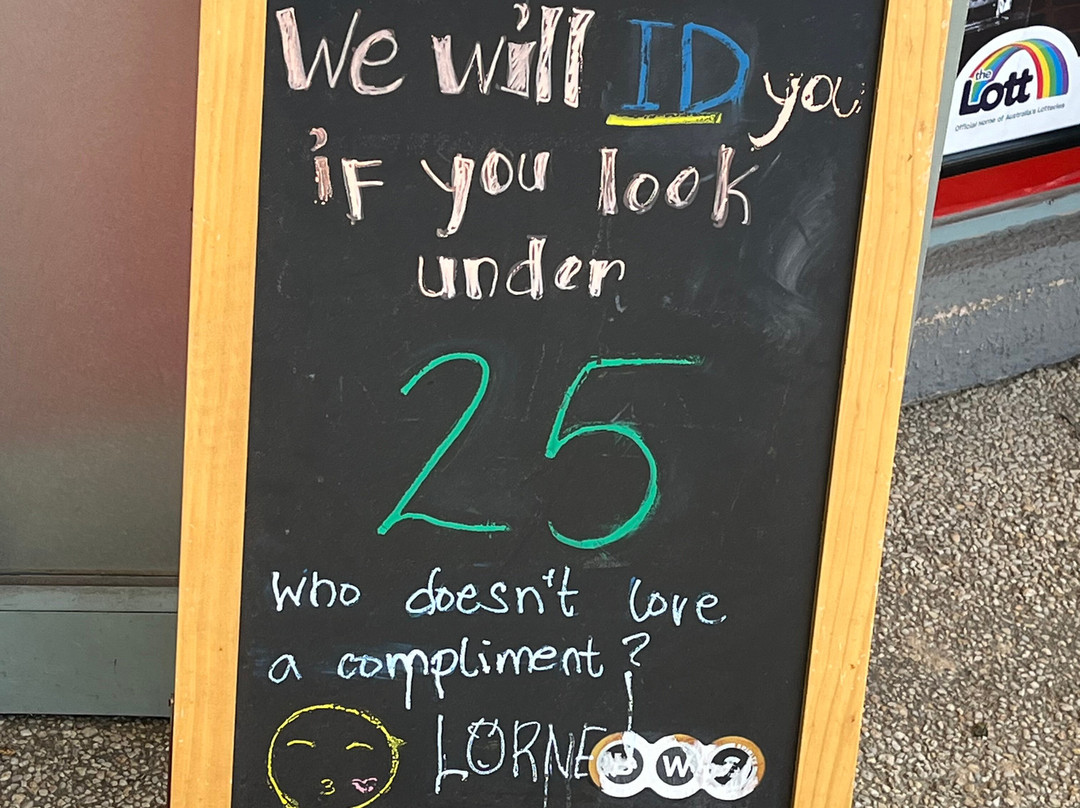 We will ID you
iF you look
under
25
Who doesn't love
a compliment?
LORNE BWS
the
Lott
Official Home of Australia's Lotteries